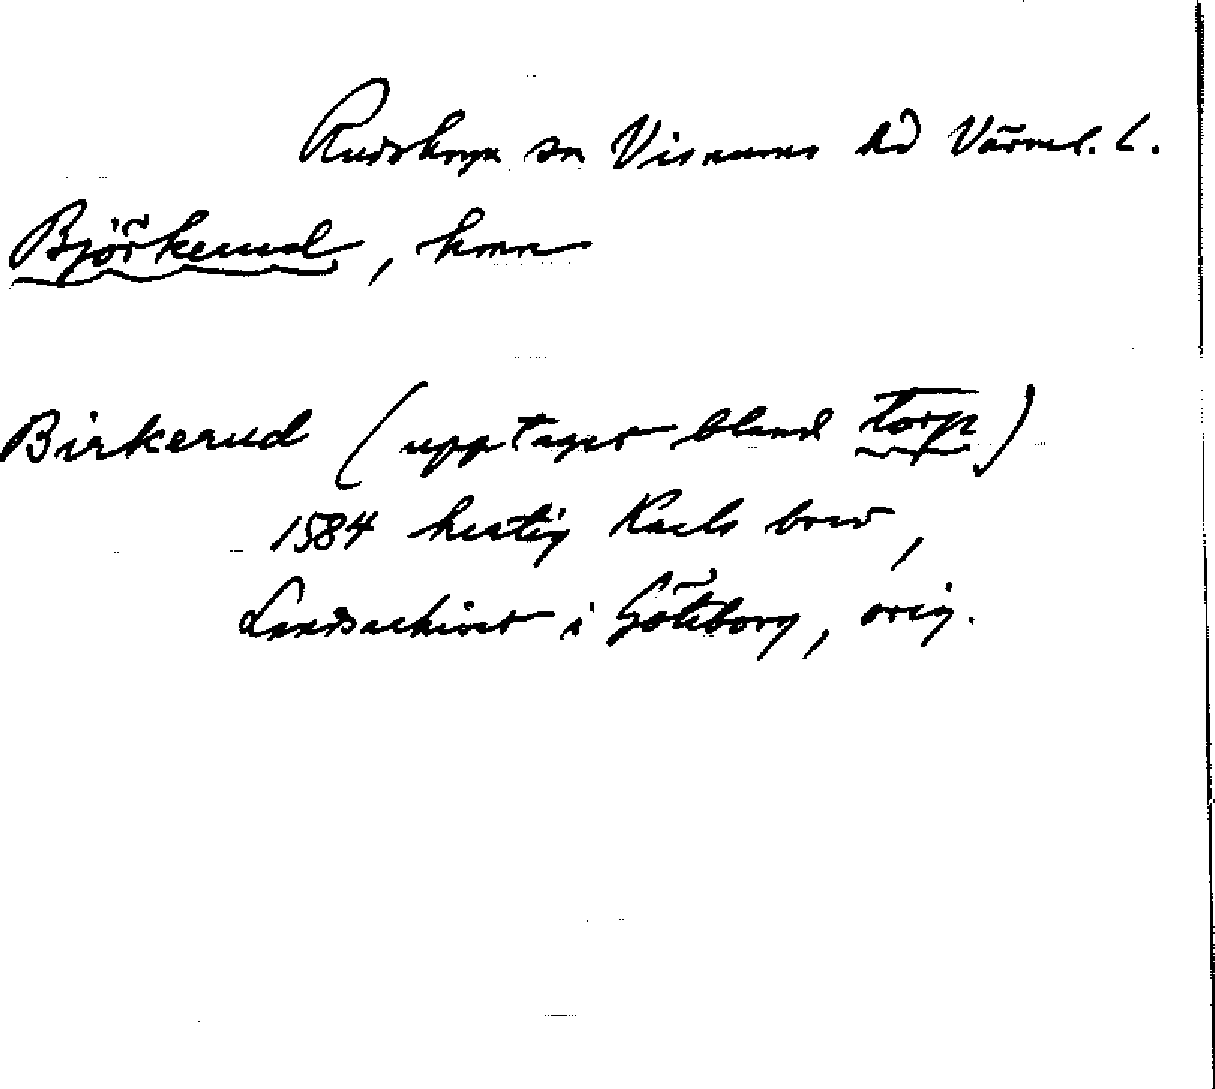 Rudskoga sn Visnums hd Värml. l.
Björkerud, hmn
Birkerud (upptaget bland torp)
1584 hertig Karls brev,
Landsarkivet i Göteborg, orig.